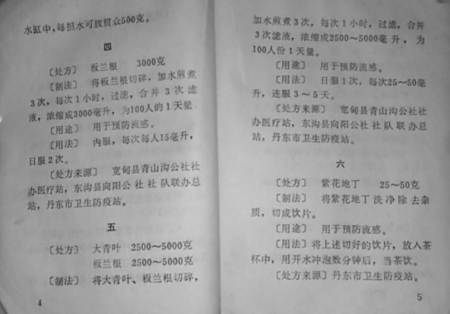 水缸中，每担水可放贯众500克。
四
〔处方〕 板兰根 3000克
〔制法〕 将板兰根切碎，加水煎煮
3次，每次1小时，过滤，合并3次滤
液，浓缩成3000毫升，为100人的1天量
〔用途〕 用于预防流感。
〔用法〕 内服，每次每人15毫升，
日服2次。
〔处方来源〕 宽甸县青山沟公社社
办医疗站，东沟县向阳公社社队联办总
站，丹东市卫生防疫站。
五
〔处方〕 大青叶 2500～5000克
板兰根 2500～5000克
〔制法〕 将大青叶、板兰根切碎，
4
加水煎煮3次，每次1小时，过滤，合并
3次滤液，浓缩成2500～5000毫升，为
100人份1天量。
〔用途〕 用于预防流感。
〔用法〕 日服1次，每次25～50毫
升，连服3～5天。
〔处方来源〕 宽甸县青山沟公社社
办医疗站，东沟县向阳公社社队联办总
站，丹东市卫生防疫站。
六
〔处方〕 紫花地丁 25～50克
〔制法〕 将紫花地丁洗净除去杂
质，切成饮片。
〔用途〕 用于预防流感。
〔用法〕将上述切好的饮片，放入茶
杯中，用开水冲泡数分钟后，当茶饮。
〔处方来源〕丹东市卫生防疫站。
5